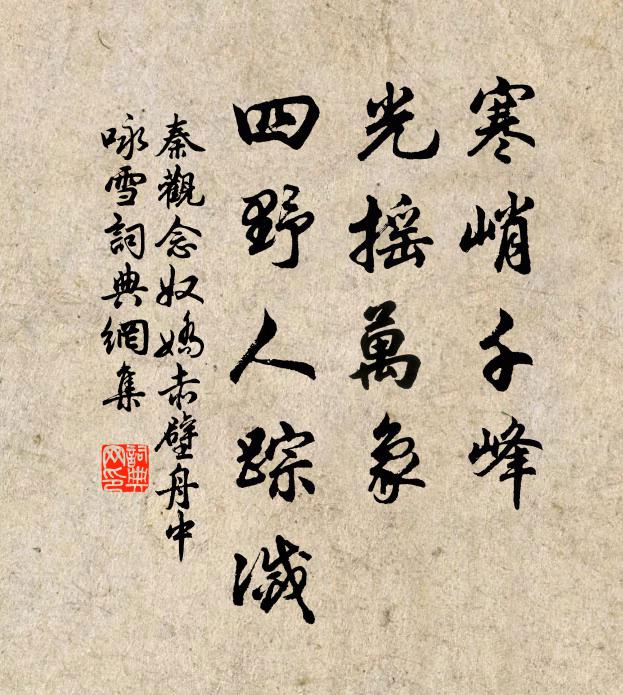 寒峭千峰
光摇萬象
四野人踪滅
秦觀念奴嬌赤壁舟中
咏雪詞典網集
詞典网印